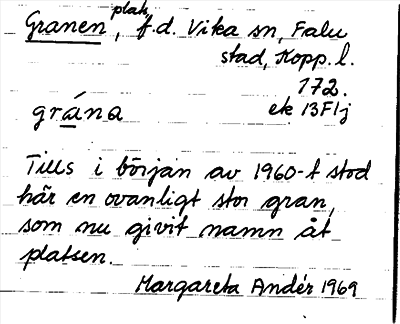 Granen, plats, f.d. Vika sn, Falu
stad, Kopp. l.
172.
ek 13F1j
grána
Tills i början av 1960-t stod
här en ovanligt stor gran,
som nu givit namn åt
platsen.
Margareta Andér 1969